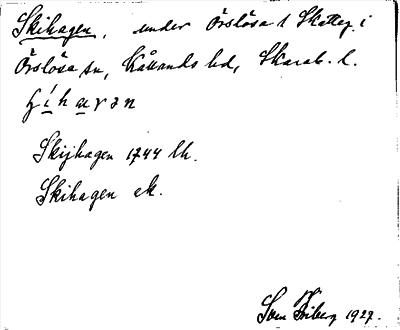 Skihagen, under Örslösa 1 Skatteg. i
Örslösa sn, Kållands hd, Skarab. l.
Skijhagen 1744 lh.
Skihagen ek.
Sven Friberg 1927.